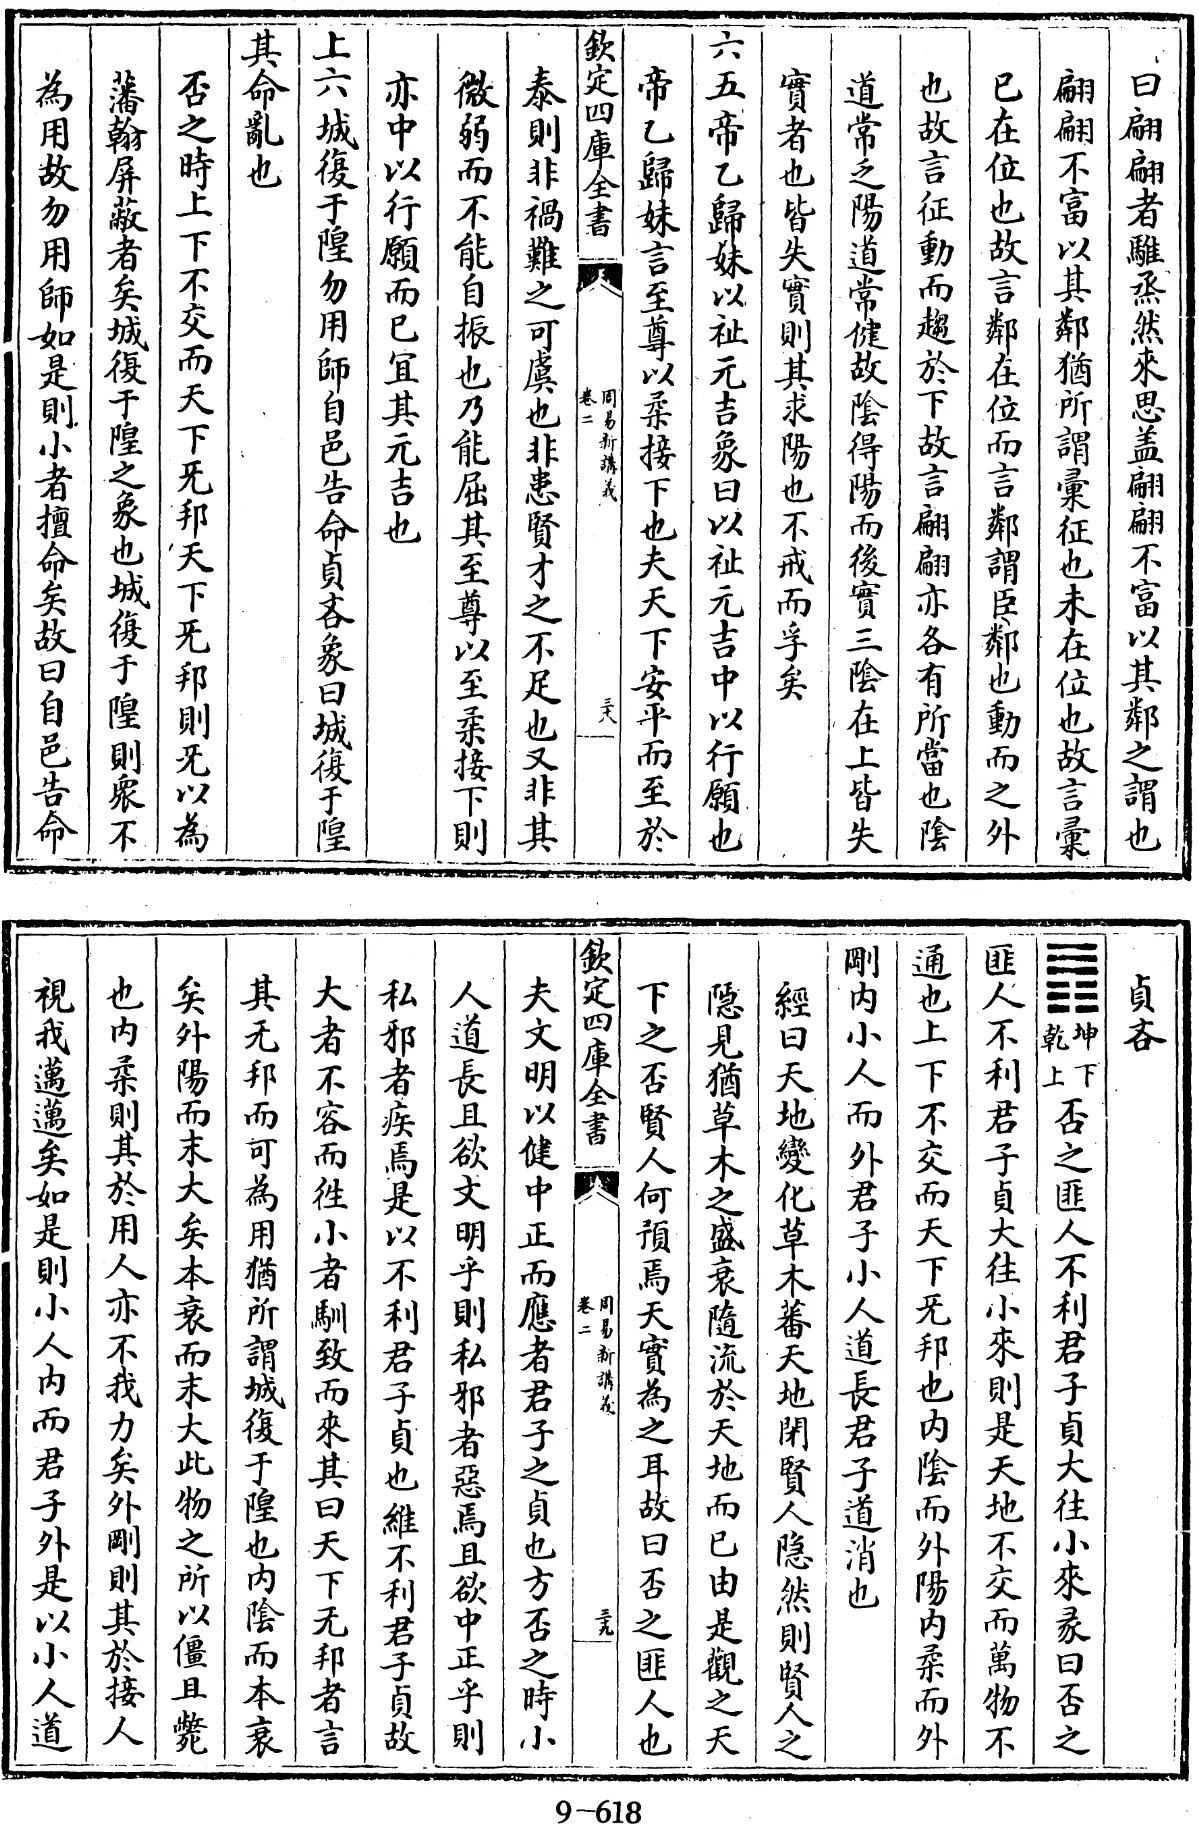 曰翩翩者騅烝然來思盖翩翩不富以其鄰之謂也
翩翩不富以其鄰猶所謂彚征也未在位也故言彚
已在位也故言鄰在位而言鄰謂臣鄰也動而之外
也故言征動而趨於下故言翩翩亦各有所當也陰
道常乏陽道常健故陰得陽而後實三陰在上皆失
實者也皆失實則其求陽也不戒而孚矣
六五帝乙歸妹以祉元吉象曰以祉元吉中以行願也
帝乙歸妹言至尊以柔接下也夫天下安平而至於
欽定四庫全書
周易新講義
卷二
三八
泰則非禍難之可虞也非患賢才之不足也又非其
微弱而不能自振也乃能屈其至尊以至柔接下則
亦中以行願而已宜其元吉也
上六城復于隍勿用師自邑告命貞吝象曰城復于隍
其命亂也
否之時上下不交而天下旡邦天下旡邦則旡以為
藩翰屏蔽者矣城復于隍之象也城復于隍則衆不
為用故勿用師如是則小者擅命矣故曰自邑告命
貞吝
䷋坤下乾上否之匪人不利君子貞大往小來彖曰否之
匪人不利君子貞大往小來則是天地不交而萬物不
通也上下不交而天下旡邦也内陰而外陽内柔而外
剛内小人而外君子小人道長君子道消也
經曰天地變化草木蕃天地閉賢人隐然則賢人之
隱見猶草木之盛衰隨流於天地而已由是觀之天
下之否賢人何預焉天實為之耳故曰否之匪人也
欽定四庫全書
周易新講義
卷二
三九
夫文明以健中正而應者君子之貞也方否之時小
人道長且欲文明乎則私邪者惡焉且欲中正乎則
私邪者疾焉是以不利君子貞也維不利君子貞故
大者不容而徃小者馴致而來其曰天下无邦者言
其无邦而可為用猶所謂城復于隍也内陰而本衰
矣外陽而末大矣本衰而末大此物之所以僵且斃
也内柔則其於用人亦不我力矣外剛則其於接人
視我邁邁矣如是則小人内而君子外是以小人道
9-618